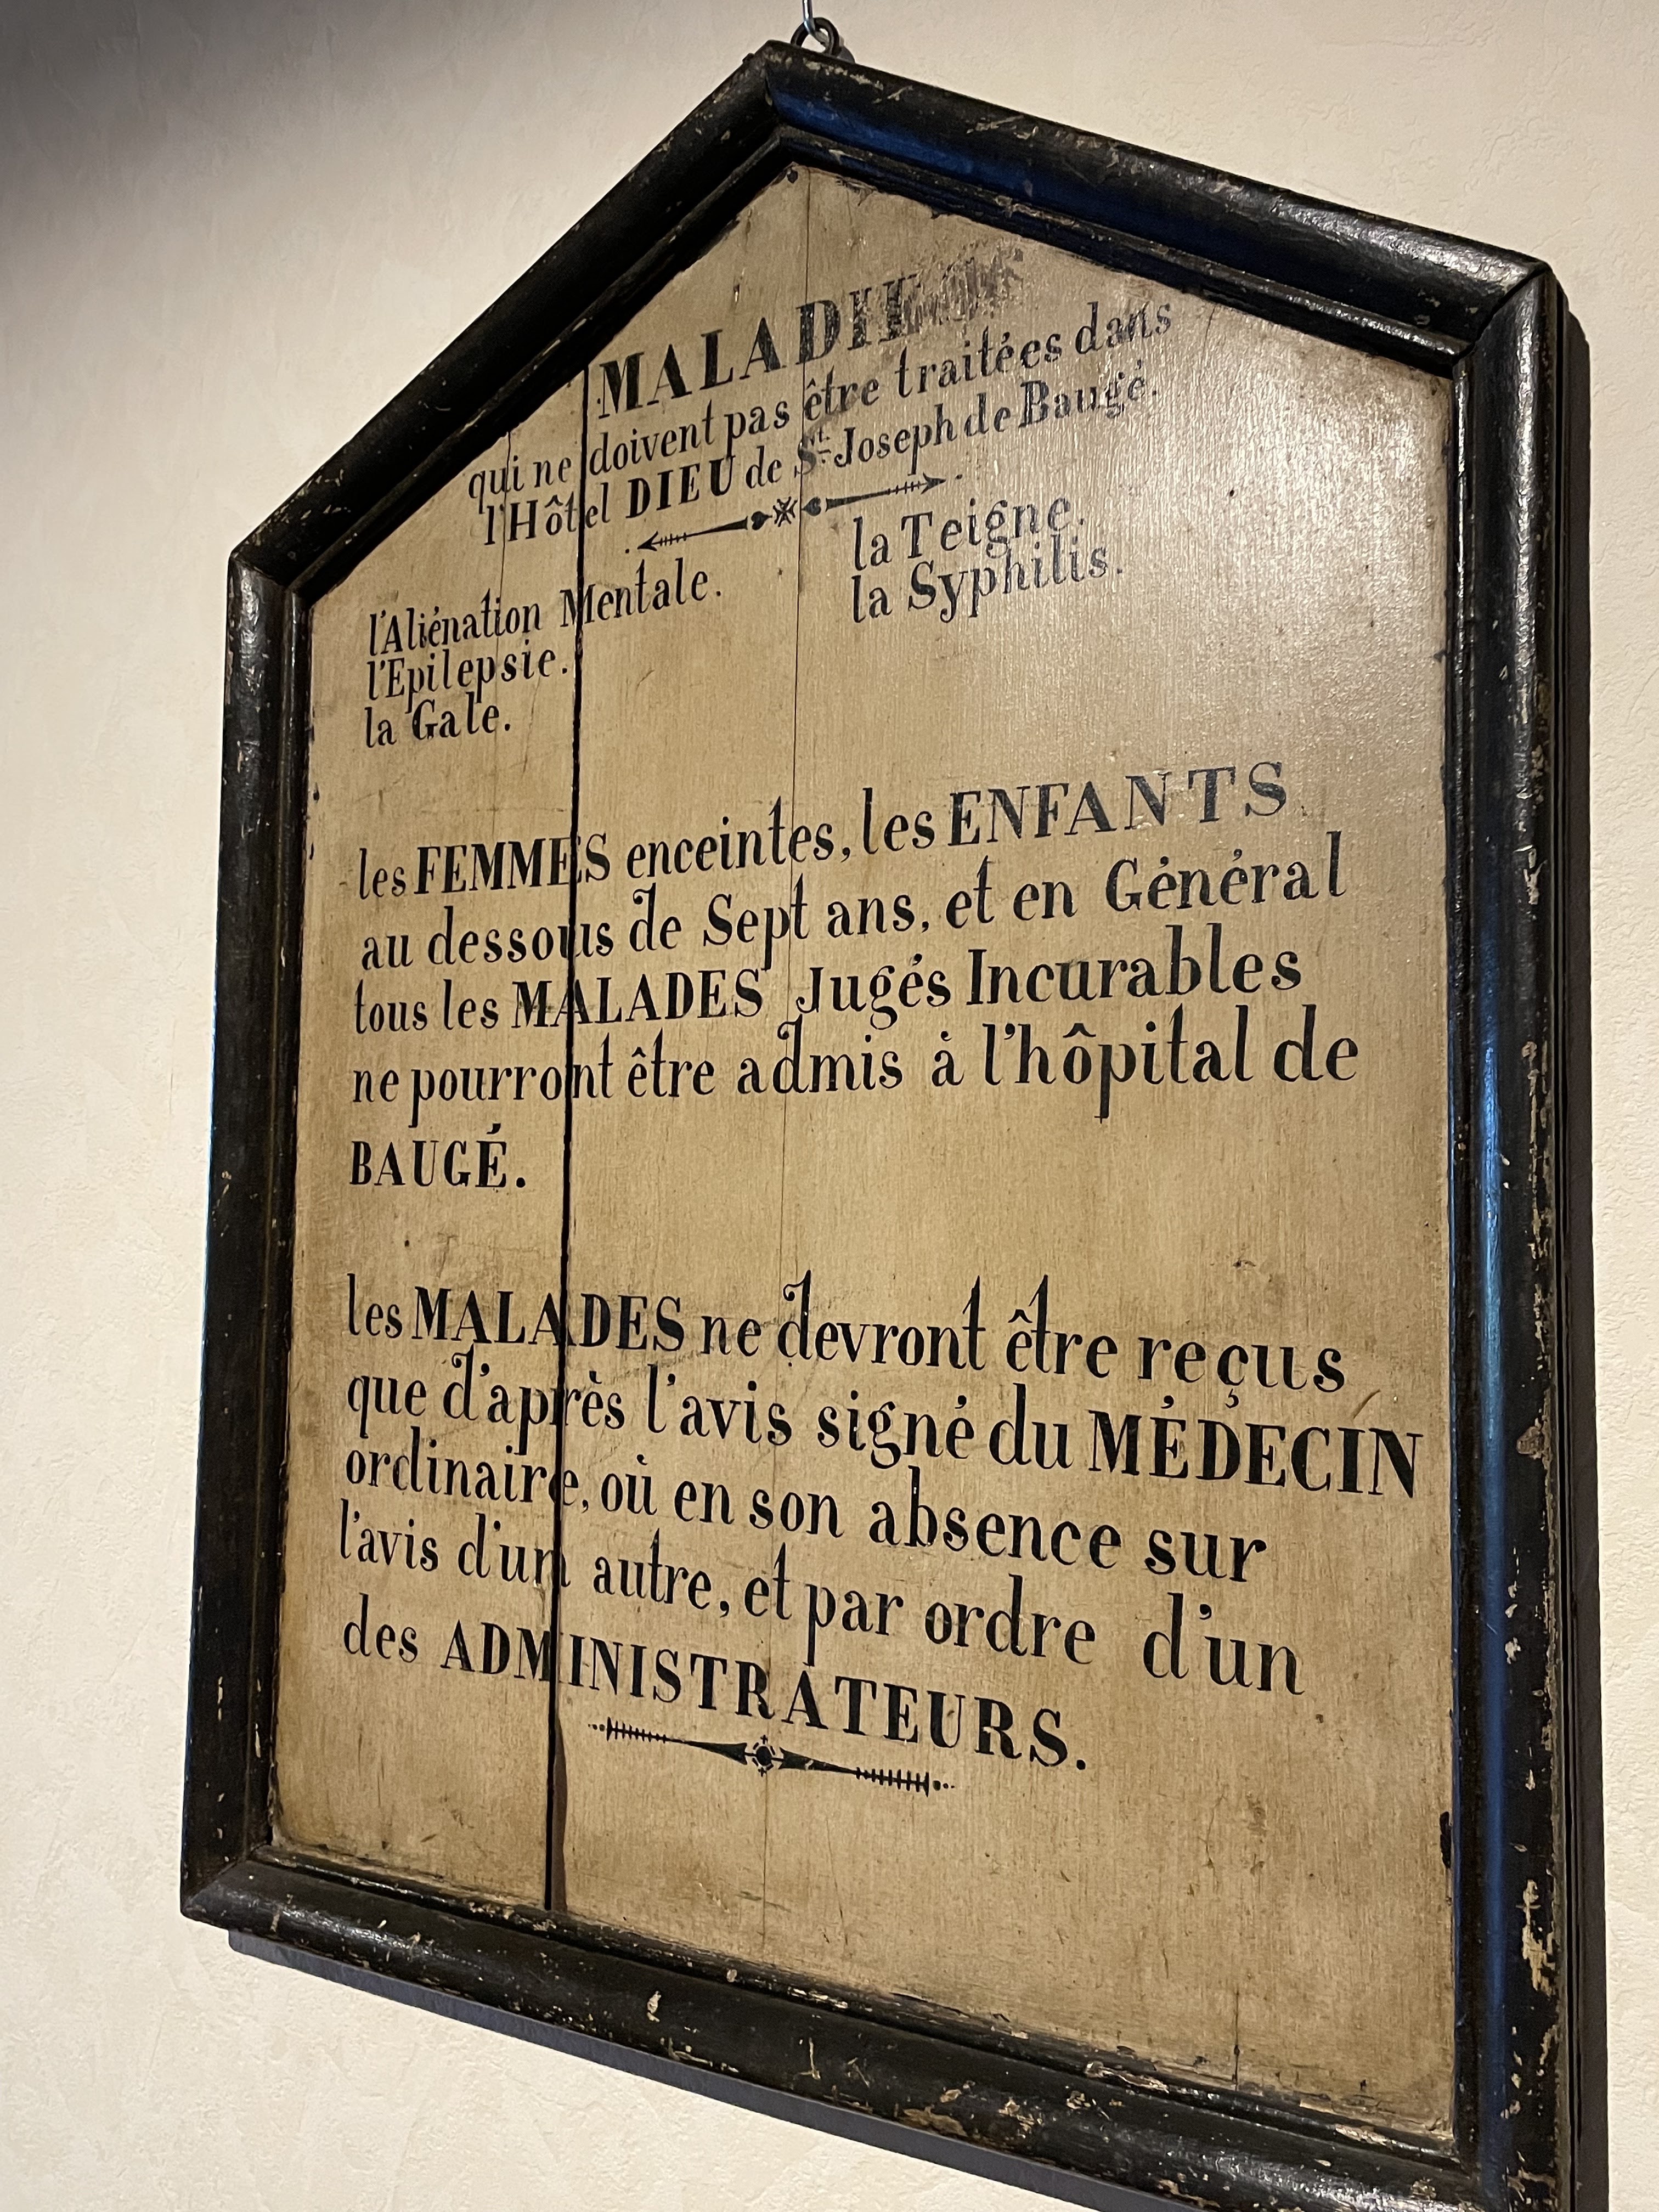 MALADIES
qui ne doivent pas être traitées dans
l'Hôtel DIEU de St. Joseph de Baugé.
l'Aliénation Mentale.
l'Epilepsie.
la Gale.
la Teigne.
la Syphilis.
les FEMMES enceintes, les ENFANTS
au dessous de Sept ans, et en Général
tous les MALADES Jugés Incurables
ne pourront être admis à l'hôpital de
BAUGÉ.
les MALADES ne devront être reçus
que d'après l'avis signé du MÉDECIN
ordinaire, où en son absence sur
l'avis d'un autre, et par ordre d'un
des ADMINISTRATEURS.